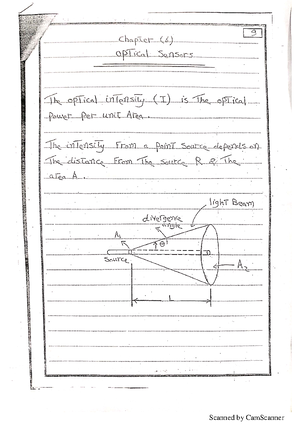 9
Chapter (6)
optical Sensors
The optical intensity (I) is The optical
power Per unit Area.
The intensity From a point source depends on
The distance From The source R & The
area A.
light Beam
divergence
angle
A1
θ
Source
A2
L
Scanned by CamScanner